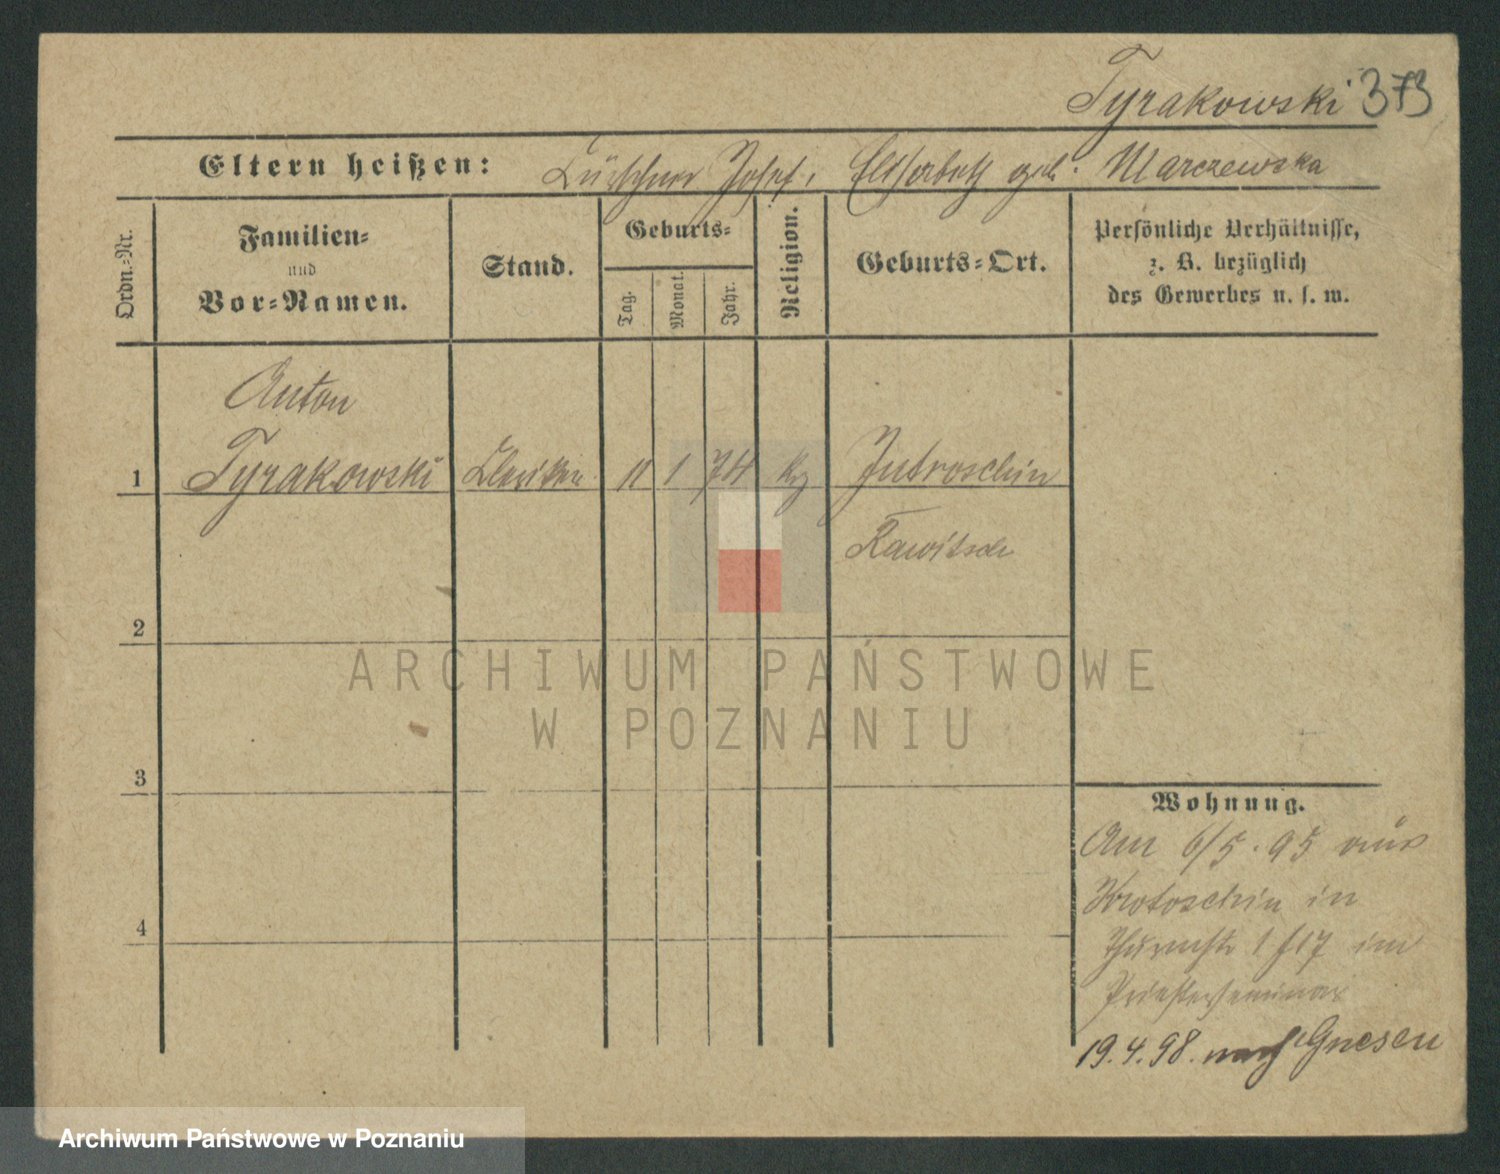 Tyrakowski 373
Eltern heißen: Kürschner Josef, Elisabeth geb. Marczewska
Ordn.-Nr.
Familien-
und
Vor-Namen.
Stand.
Geburts-
Tag.
Monat.
Jahr.
Religion.
Geburts-Ort.
Persönliche Verhältnisse,
z. B. bezüglich
des Gewerbes u. s. w.
Anton
1 Tyrakowski Kleriker 11 1 74 Jutroschin
Rawitsch
2
3
4
Wohnung.
Am 6/5. 95 aus
Krotoschin in
1 / 17 im
Priesterseminar
19.4.98. nach Gnesen
ARCHIWUM PAŃSTWOWE
W POZNANIU
Archiwum Państwowe w Poznaniu